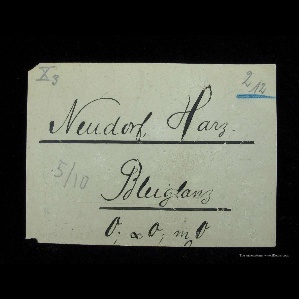 X3
2/12
Neudorf, Harz.
5/10
Bleiglanz
O, ∞O, mO